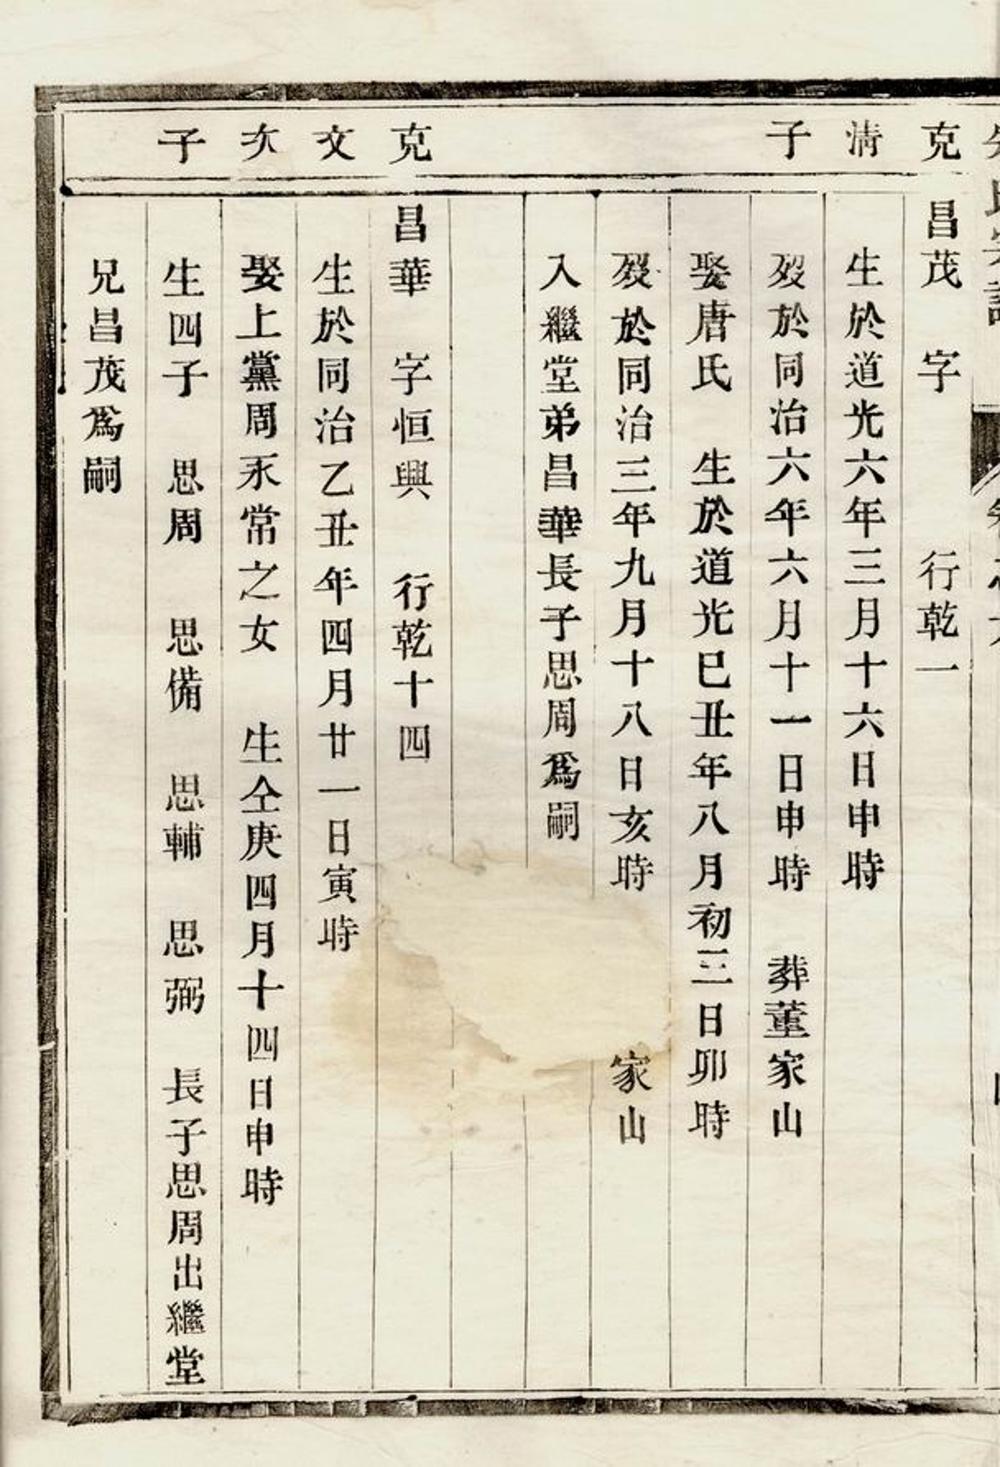 克清子
昌茂 字 行乾一
生於道光六年三月十六日申時
歿於同治六年六月十一日申時 葬董家山
娶唐氏 生於道光巳丑年八月初三日卯時
歿於同治三年九月十八日亥時 家山
入繼堂弟昌華長子思周爲嗣
克文次子
昌華 字恒興 行乾十四
生於同治乙丑年四月廿一日寅時
娶上黨周永常之女 生仝庚四月十四日申時
生四子 思周 思備 思輔 思弼 長子思周出繼堂
兄昌茂爲嗣